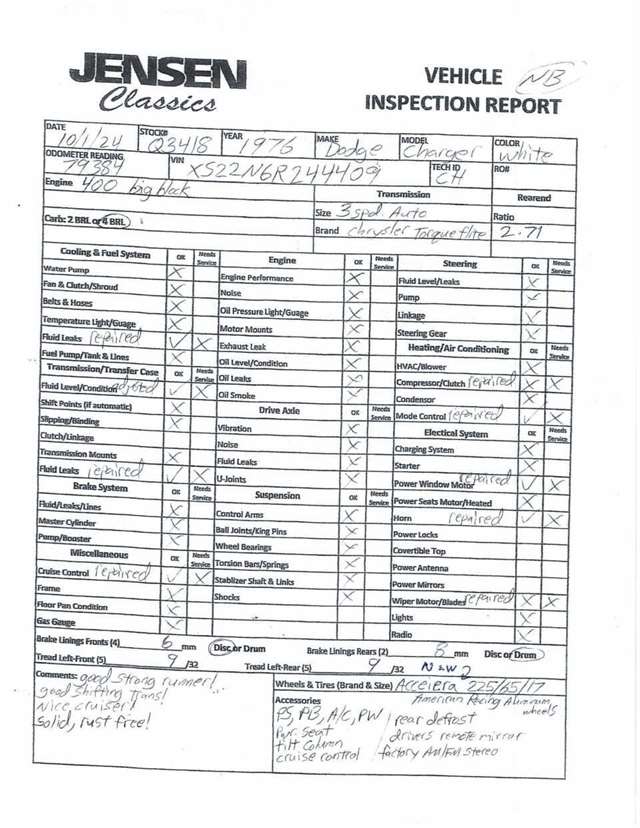 JENSEN
Classics
VEHICLE NB
INSPECTION REPORT
DATE 10/1/24 STOCK# Q3418 YEAR 1976 MAKE Dodge MODEL Charger COLOR White
ODOMETER READING 79384 VIN XS22N6R244409 TECH ID CH RO#
Engine 400 big block Transmission Rearend
Carb: 2 BRL or 4 BRL Size 3 spd. Auto Ratio
Brand Chrysler Torqueflite 2.71
Cooling & Fuel System OK Needs Service
Water Pump X
Fan & Clutch/Shroud X
Belts & Hoses X
Temperature Light/Guage X
Fluid Leaks repaired ✓ X
Fuel Pump/Tank & Lines X
Transmission/Transfer Case OK Needs Service
Fluid Level/Condition adjusted ✓ X
Shift Points (if automatic) X
Slipping/Binding X
Clutch/Linkage
Transmission Mounts X
Fluid Leaks repaired ✓ X
Brake System OK Needs Service
Fluid/Leaks/Lines X
Master Cylinder X
Pump/Booster X
Miscellaneous OK Needs Service
Cruise Control repaired ✓ X
Frame X
Floor Pan Condition X
Gas Gauge X
Engine OK Needs Service
Engine Performance X
Noise X
Oil Pressure Light/Guage X
Motor Mounts X
Exhaust Leak X
Oil Level/Condition X
Oil Leaks X
Oil Smoke X
Drive Axle OK Needs Service
Vibration X
Noise X
Fluid Leaks X
U-Joints X
Suspension OK Needs Service
Control Arms X
Ball Joints/King Pins X
Wheel Bearings X
Torsion Bars/Springs X
Stablizer Shaft & Links X
Shocks X
Steering OK Needs Service
Fluid Level/Leaks X
Pump X
Linkage X
Steering Gear X
Heating/Air Conditioning OK Needs Service
HVAC/Blower X
Compressor/Clutch repaired X X
Condensor X
Mode Control repaired ✓ X
Electical System OK Needs Service
Charging System X
Starter X
Power Window Motor repaired ✓ X
Power Seats Motor/Heated X
Horn repaired ✓ X
Power Locks
Covertible Top
Power Antenna
Power Mirrors
Wiper Motor/Blades repaired X X
Lights X
Radio X
Brake Linings Fronts (4) 6 mm Disc or Drum Brake Linings Rears (2) mm Disc or Drum
Tread Left-Front (5) 9 /32 Tread Left-Rear (5) 9 /32 NEW
Comments: good strong runner!
good shifting trans!
Nice cruiser!
Solid, rust free!
Wheels & Tires (Brand & Size) Accelera 225/65/17
American Racing Aluminum wheels
Accessories
PS, PB, A/C, PW / rear defrost
Pwr. Seat drivers remote mirror
tilt Column factory AM/FM Stereo
cruise control